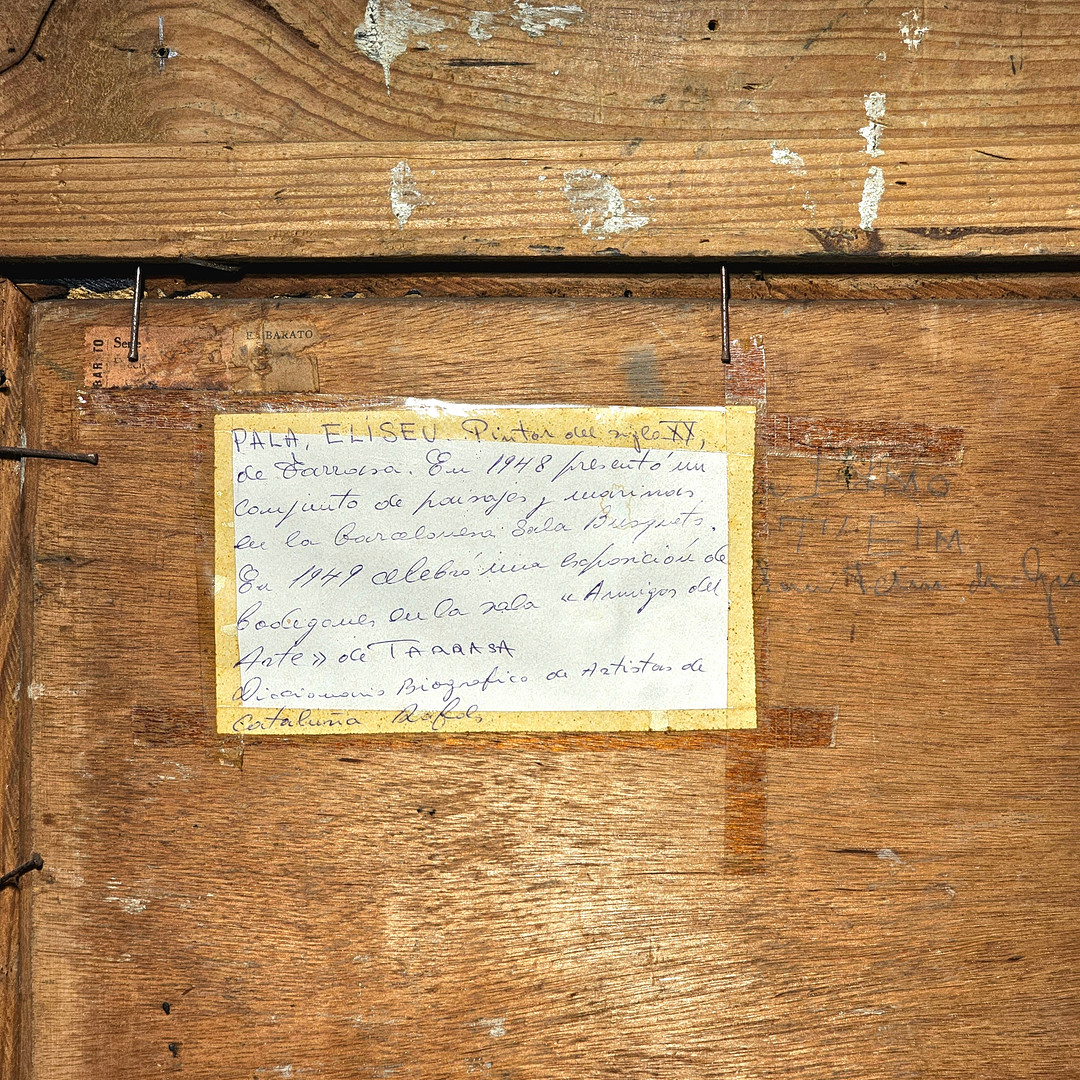 BARATO
Serie
BARATO
PALA, ELISEU. Pintor del siglo XX,
de Tarrasa. En 1948 presentó un
conjunto de paisajes y marinas,
en la barcelonesa Sala Busquets.
En 1949 celebró una exposición de
bodegones en la sala "Amigos del
Arte» de TARRASA
Diccionario Biografico de Artistas de
Cataluña Rafols